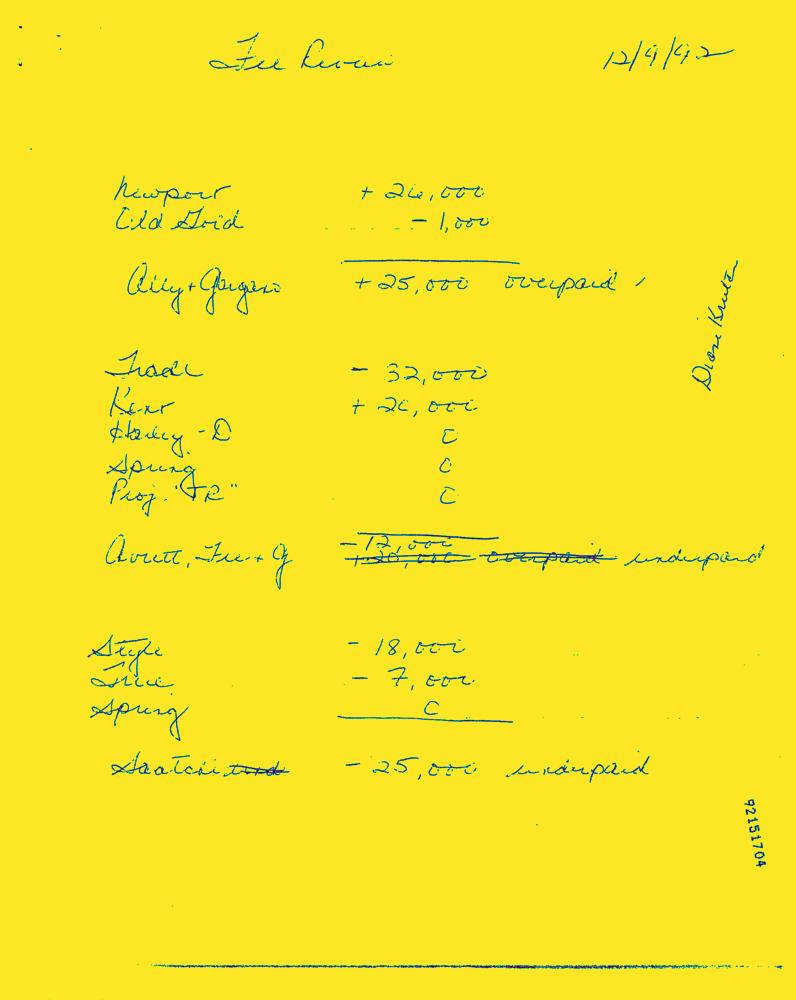 Fee Review 12/9/92
Newport + 26,000
Old Gold - 1,000
Ally + Gargano + 25,000 overpaid
Trade - 32,000
Kent + 20,000
Harley - D 0
Spring 0
Proj. "R" 0
Avrett, Free + G - 12,000 underpaid
Style - 18,000
True - 7,000
Spring 0
Saatchi - 25,000 underpaid
Diane
92151704